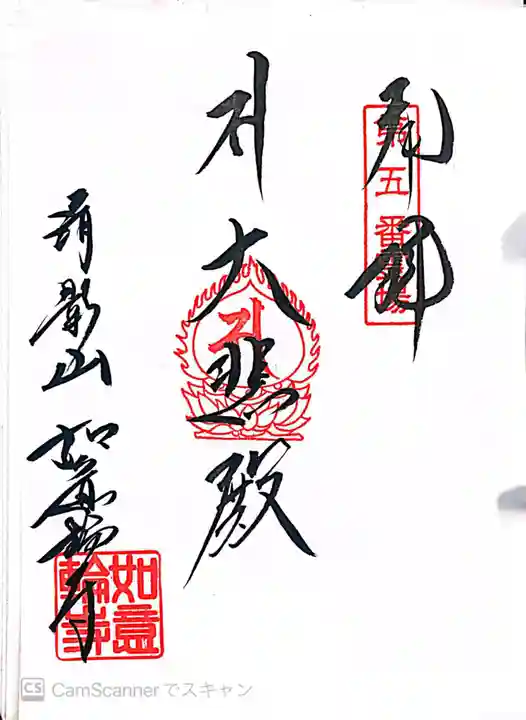 第五番霊場
大悲殿
清影山 如意輪寺
如意輪寺
CS CamScannerでスキャン